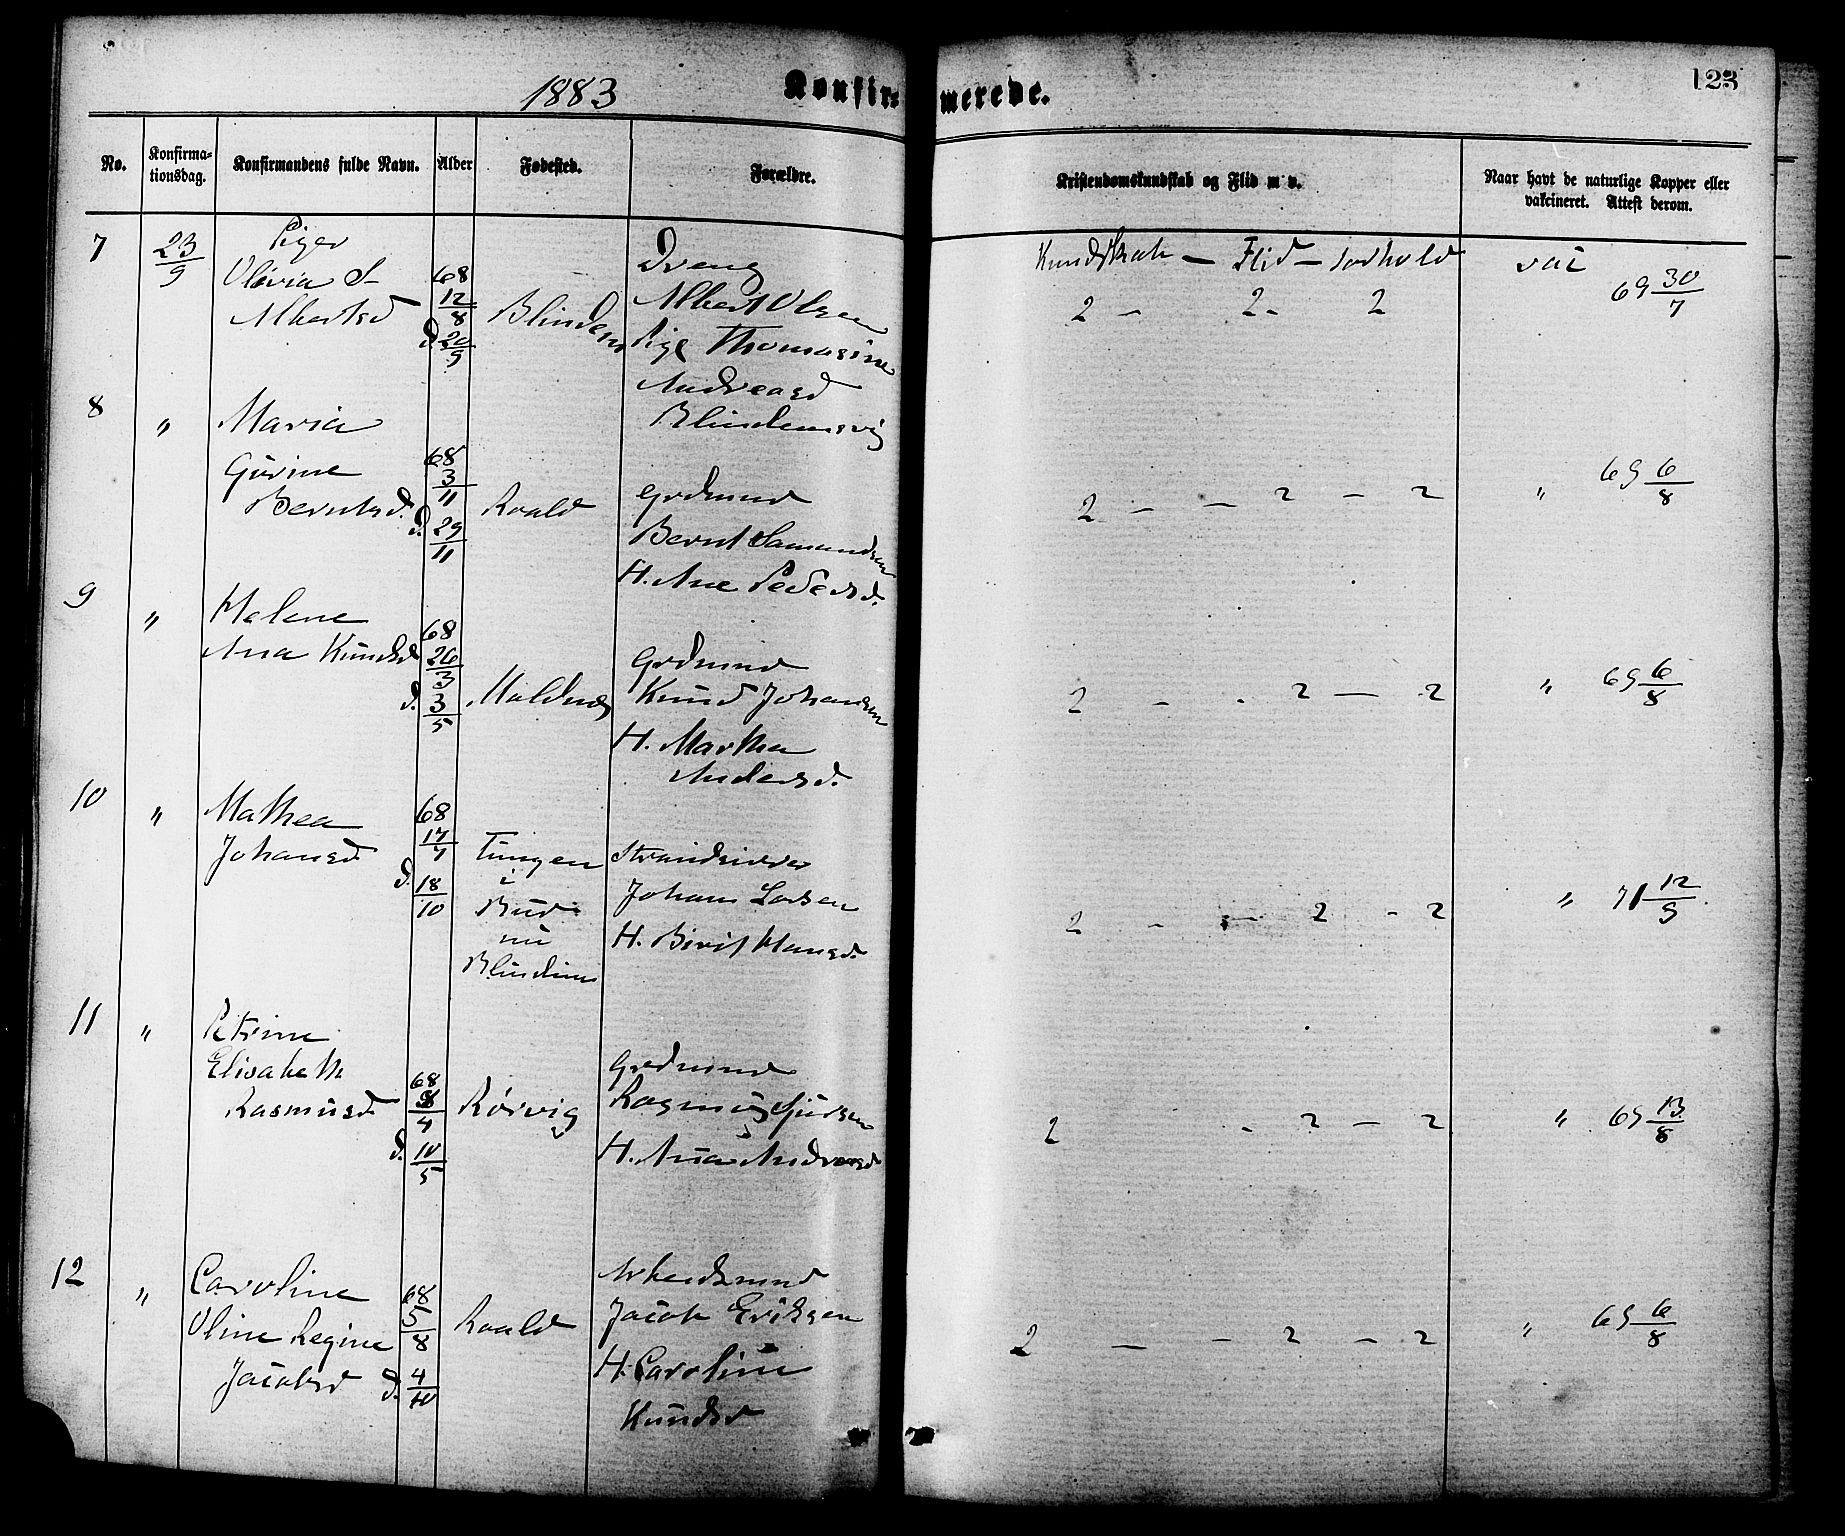 1883
Konfirmerede.
123
No.
Konfirma-
tionsdag.
Konfirmandens fulde Navn.
Alder
Fødested.
Forældre.
Kristendomskundskab og Flid m v.
Naar havt de naturlige Kopper eller
vakcineret. Attest derom.
7
23/9
Piger
Olivia S-
Albertsd
68
12/8
d. 20/9
Blindem
Dreng
Albert Olsen
Pige Thomasine
Andreasd
Blindemsvig
Kundskab - Flid - Forhold
2 - 2 - 2
vac
69 30/7
8
"
Maria
Gurine
Berntsd.
68
3/11
d. 29/11
Roald
Grdmand
Bernt Samundsen
H. Ane Pedersd.
2 - - 2 - 2
" 69 6/8
9
"
Helene
Ana Knudsd
68
26/3
d. 3/5
Moldnæs
Grdmand
Knud Johansen
H. Martha
Andersd.
2 - - 2 - 2
" 69 6/8
10
"
Mathea
Johansd
68
17/7
d. 18/10
Tungen
i
Bud
nu
Blindem
Strandsidder
Johan Larsen
H. Birit Hansd.
2 - - 2 - 2
" 71 12/9
11
"
Petrine
Elisabeth
Rasmusd
68
8/4
d. 10/5
Rørvig
Grdmand
Rasmus Sjursen
H. Ana Andreasd
2 - 2 - 2
" 69 13/8
12
"
Caroline
Oline Regine
Jacobsd
68
5/8
d. 4/10
Roald
Arbeidsmand
Jacob Eriksen
H. Caroline
Knudsd
2 - - 2 - 2
" 69 6/8